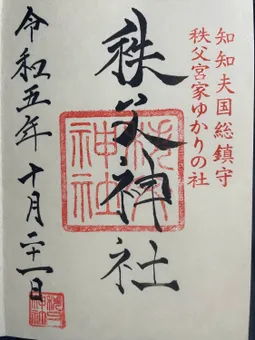 知知夫国総鎮守
秩父宮家ゆかりの社
秩父神社
令和五年十月二十一日